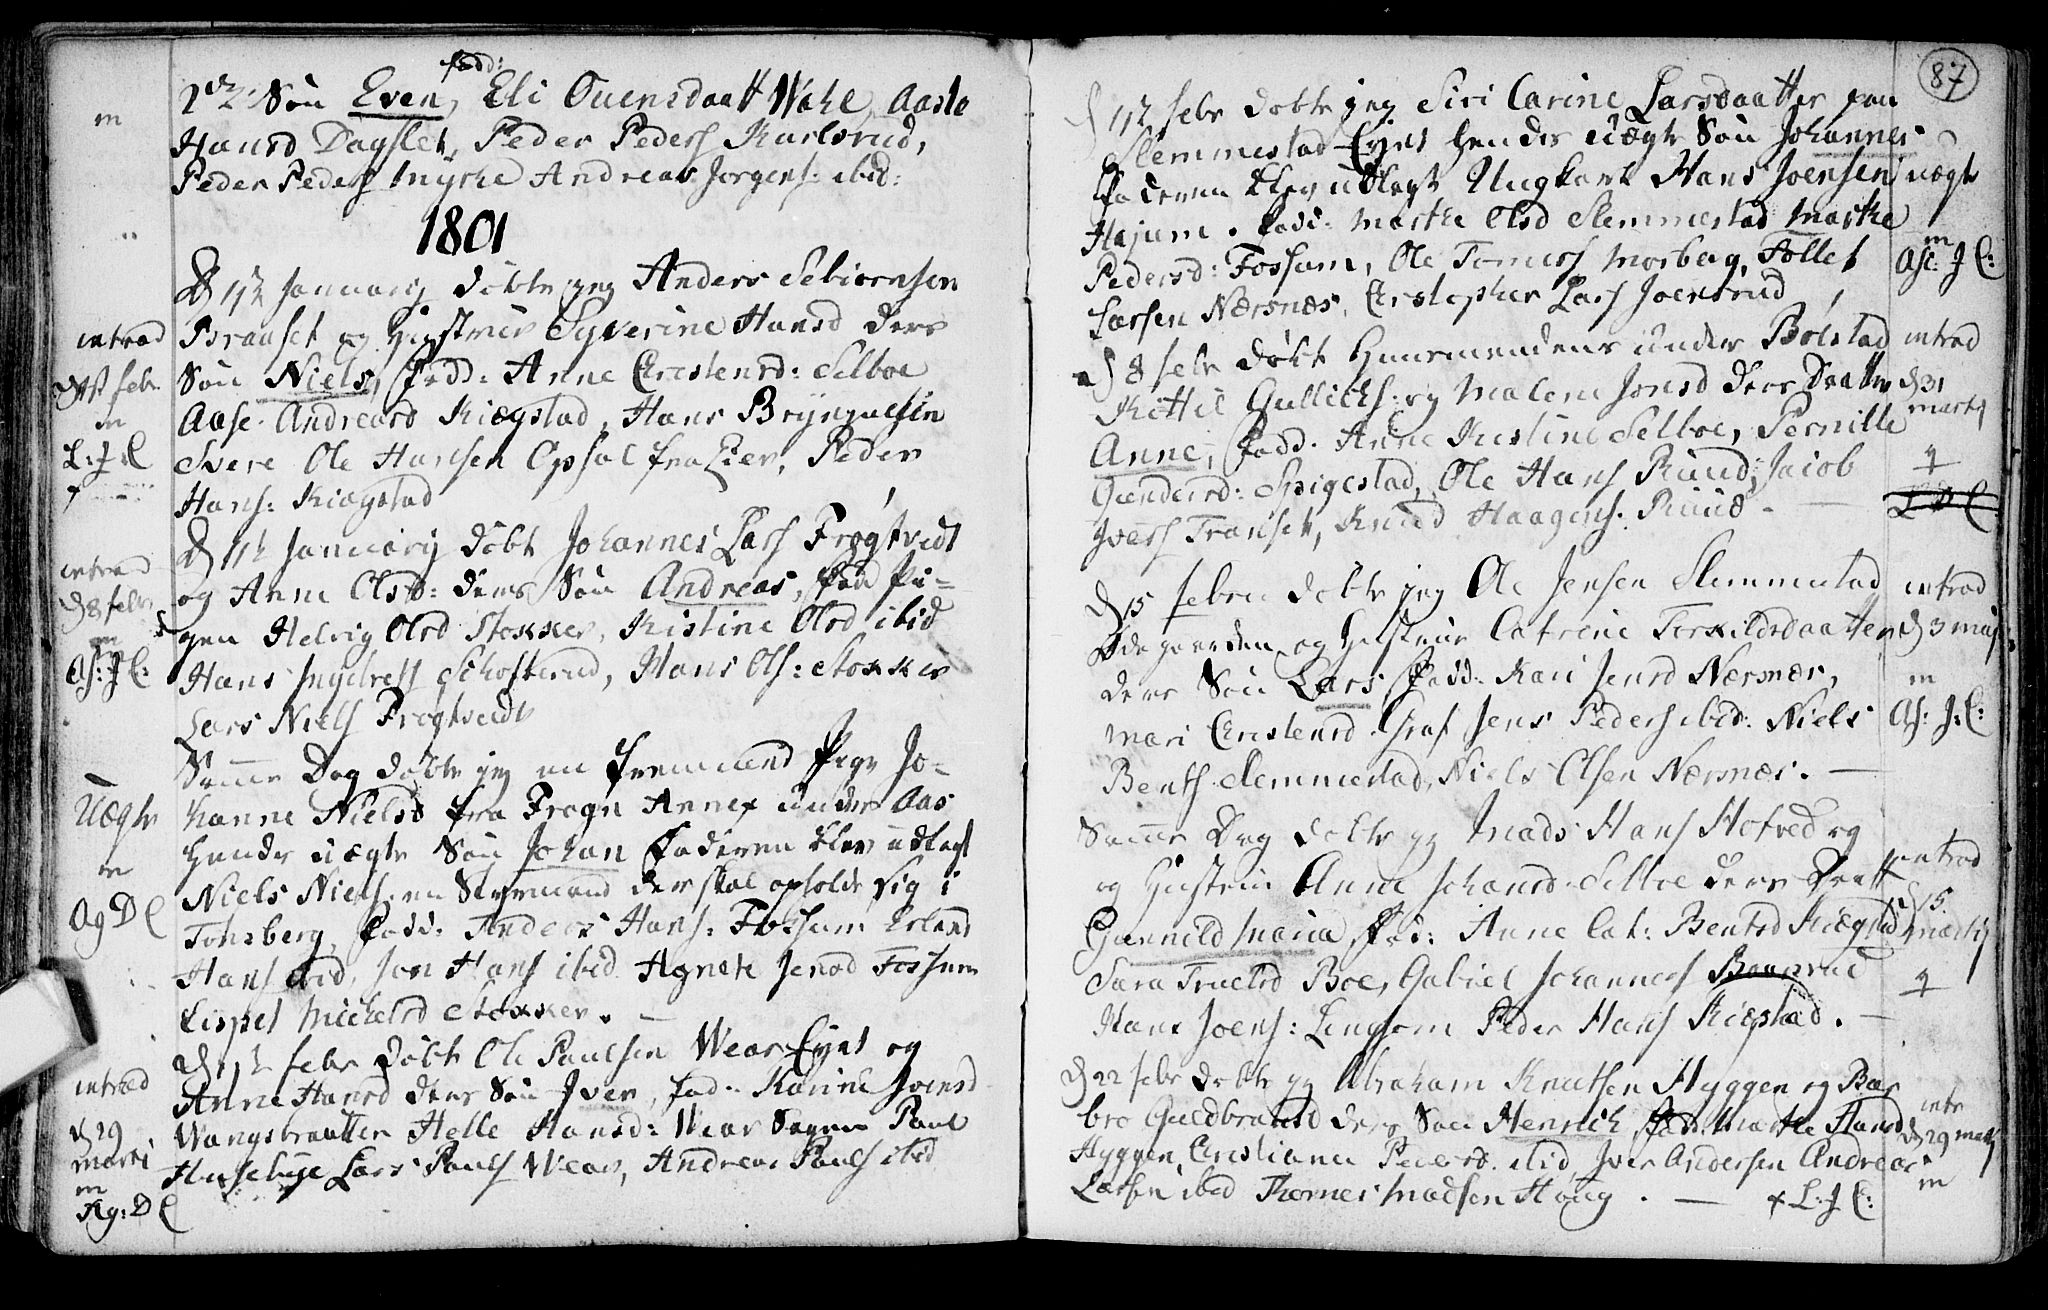 fadd:
Søn Even, Eli Ouensdaatt Wahl, Aaste
Hansd Dagslet, Peder Peders Karlsrud,
Peder Peders Myhre Andreas Jorgens: ibid:
m
1801
D 1ste Januarij døbte jeg Anders Sebiørnsen
Braaset og Hustrue Syverine Hansd ders
Søn Niels, fadd: Anne Christensd: Selboe
Aase Andreasd Kiægstad, Hans Brynjulsen
Svere Ole Hansen Opsal fra Lier, Peder
Hans: Kiægstad
introd
febr
m
L: J: C
D Januarij døbt Johannes Lars Frøgtvedt
og Anne Olsd: deres Søn Andreas, fad Pi-
gen Helvig Olsd Stokker, Kistine Olsd ibid
Hans Ingebretts Schosterud, Hans Ols: Stokker
Lars Niels Frøgtvedt
introd
D 8 febr
m
As: J C:
Samme Dag døbte jeg en fremmend Pige Jo-
hanne Nielsd fra Frogn Annex under Aas
hendes uægte Søn Johan Faderen blev udlagt
Niels Niels: en Styrmand der skal opholde sig i
Tonsberg, fadd: Anders Hans: Fossum Erland
Hans ibid, Jon Hans ibid Agnete Jensd Fossum
Lispet Michelsd Stokker. —
Uægte
m
Ag D C
D febr døbt Ole Paulsen Wear Eyet og
Anne Hansd deres Søn Iver, fad: Karine Joensd
Wangsbraatten Helle Hansd: Wear Søgne Paul
Lars Pauls Wear, Andreas Pauls ibid
introd
D 29
marti
m
Ag: D C
87
D febr døbte jeg Siri Carine Larsdaatter paa
Slemmestad Eyet hendes uægte Søn Johannes
Faderen blev udlagt Ungkarl Hans Joensen
Hajum. Fadd: Marthe Olsd Slemmestad Marthe
Pedersd: Fossum, Ole Tomess Morberg, Tollef
Larsen Nærsnæs, Cristopher Lars Joensrud
uægte
m
As: J C:
D 8 febr døbt Huusmendens under Bølstad
Kittil Gullichs: og Malene Jonsd ders Daatter
Anne, fadd: Anne Kistine Selboe, Pernille
Gundersd: Spigestad, Ole Hans Ruud, Jacob
Ivers Transet, Knud Haagens: Ruud. —
introd
D 31
martij
q
L D C.
D 15 febru døbte jeg Ole Jensen Slemmestad
Ødegaarden og Hustrue Catrine Terkildsdaatter
deres Søn Lars fadd: Kari Jensd Nærsnæs,
Mari Cristensd Graf Jens Peders ibid: Niels
Bents Slemmestad, Niels Olsen Nærsnæs. —
introd
D 3 maj
m
As: J: C:
Samme Dag døbte jeg Mads Hans Hofved og
og Hustrue Anne Johansd Selboe deres Daatt
Gunnild Maria, fad: Anne Cat: Bentsd Kiægstad
Sara Truelsd Boe, Gabriel Johanness
Hans Joens: Lingsom Peder Hans Kiægstad. —
introd
D 15
martij
q
D 22 febr døbte jeg Abraham Knutsen Hyggen og Bar
bro Guldbransd deres Søn Henrich, fad: Marthe Hansd
Hyggen, Cristiana Pedersd: ibid, Iver Andersen Andreas
Larsen ibid Thomes Madsen Houg. —
intr
D 29 martij
m
L: J C: